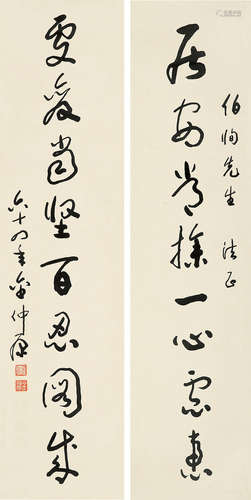 伯恂先生 法正
居安常操一心慮患
處變當堅百忍圖成
六十四年仲